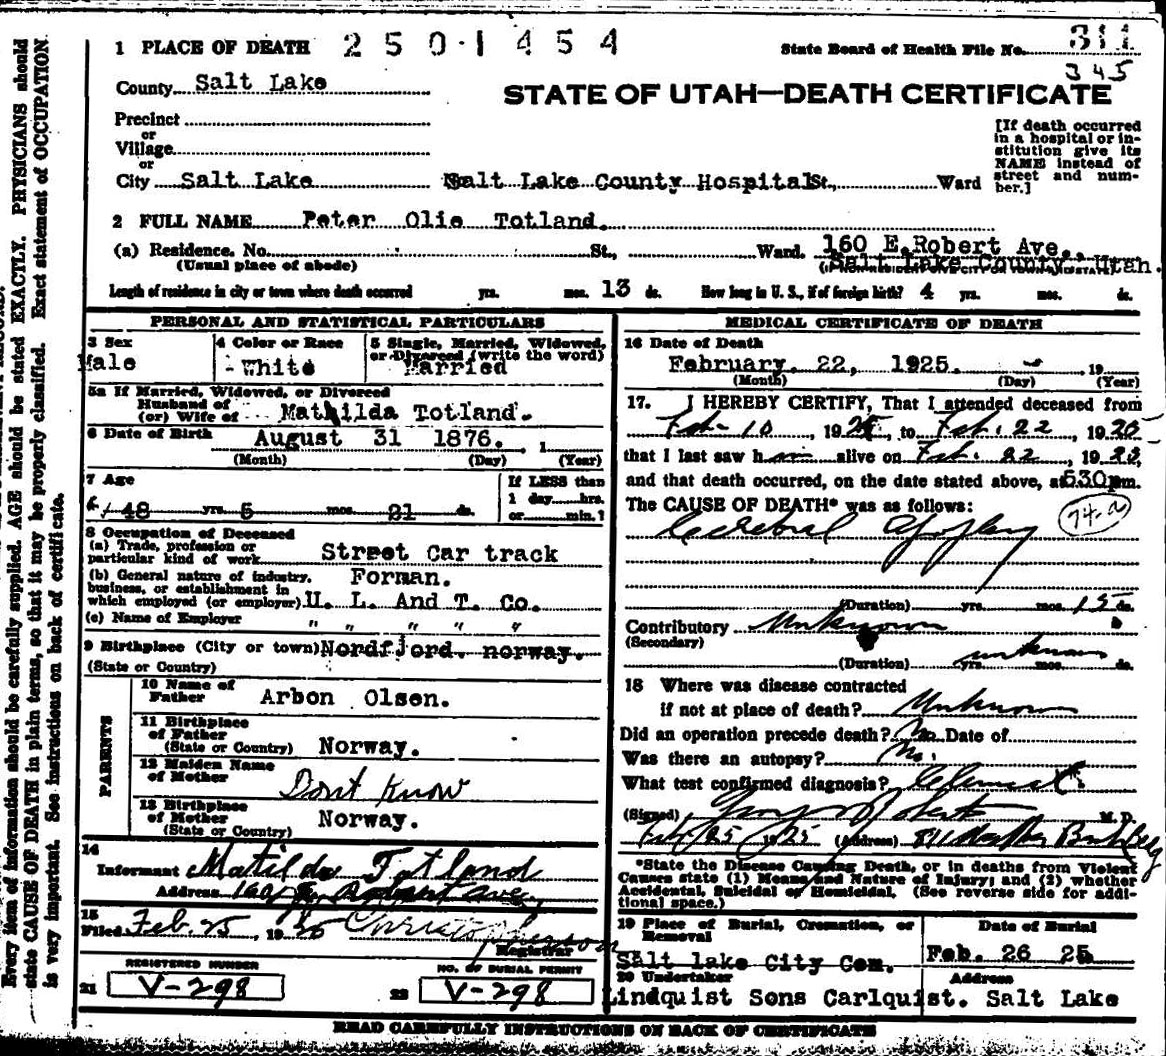 1 PLACE OF DEATH 250·1454 State Board of Health File No. 311
345
County Salt Lake
STATE OF UTAH—DEATH CERTIFICATE
Precinct
or
Village
or
City Salt Lake Salt Lake County Hospital St., Ward
[If death occurred
in a hospital or in-
stitution give its
NAME instead of
street and num-
ber.]
2 FULL NAME Peter Olie Totland.
(a) Residence. No. St., Ward. 160 E.Robert Ave.
(Usual place of abode) Salt Lake County, Utah.
Length of residence in city or town where death occurred yrs. mos. 13 ds. How long in U. S., if of foreign birth? 4 yrs. mos. ds.
PERSONAL AND STATISTICAL PARTICULARS
3 Sex
Male
4 Color or Race
White
5 Single, Married, Widowed,
or Divorced (write the word)
Married
5a If Married, Widowed, or Divorced
Husband of
(or) Wife of Mathilda Totland.
6 Date of Birth August 31 1876. , 1
(Month) (Day) (Year)
7 Age
48 yrs. 5 mos. 21 ds.
If LESS than
1 day hrs.
or min.?
8 Occupation of Deceased
(a) Trade, profession or
particular kind of work Street Car track
(b) General nature of industry, Forman.
business, or establishment in
which employed (or employer) U. L. And T. Co.
(c) Name of Employer " " " " "
9 Birthplace (City or town) Nordfjord. norway.
(State or Country)
PARENTS
10 Name of
Father Arbon Olsen.
11 Birthplace
of Father
(State or Country) Norway.
12 Maiden Name
of Mother Dont Know
13 Birthplace
of Mother
(State or Country) Norway.
14
Informant Matilda Totland
Address 160 E Robert ave,
15
Filed Feb. 25, 1925
Registrar
REGISTERED NUMBER
21 V-298
NO. OF BURIAL PERMIT
22 V-298
MEDICAL CERTIFICATE OF DEATH
16 Date of Death
February. 22, 1925. 19
(Month) (Day) (Year)
17. I HEREBY CERTIFY, That I attended deceased from
Feb-10, 1925, to Feb. 22, 1925
that I last saw him alive on Feb. 22, 1925,
and that death occurred, on the date stated above, at 530 pm.
The CAUSE OF DEATH* was as follows:
74-a
Cerebral Apoplexy
(Duration) yrs. mos. 15 ds.
Contributory Unknown
(Secondary)
(Duration) yrs. unknown mos. ds.
18 Where was disease contracted
if not at place of death? Unknown
Did an operation precede death? No Date of
Was there an autopsy? No.
What test confirmed diagnosis?
(Signed) M. D.
Feb, 25, 1925 (Address)
*State the Disease Causing Death, or in deaths from Violent
Causes state (1) Means and Nature of Injury; and (2) whether
Accidental, Suicidal or Homicidal. (See reverse side for addi-
tional space.)
19 Place of Burial, Cremation, or
Removal
Salt lake City Cem.
Date of Burial
Feb. 26 25
20 Undertaker Address
Lindquist Sons Carlquist. Salt Lake
READ CAREFULLY INSTRUCTIONS ON BACK OF CERTIFICATE
Every item of information should be carefully supplied. AGE should be stated EXACTLY. PHYSICIANS should
state CAUSE OF DEATH in plain terms, so that it may be properly classified. Exact statement of OCCUPATION
is very important. See instructions on back of certificate.